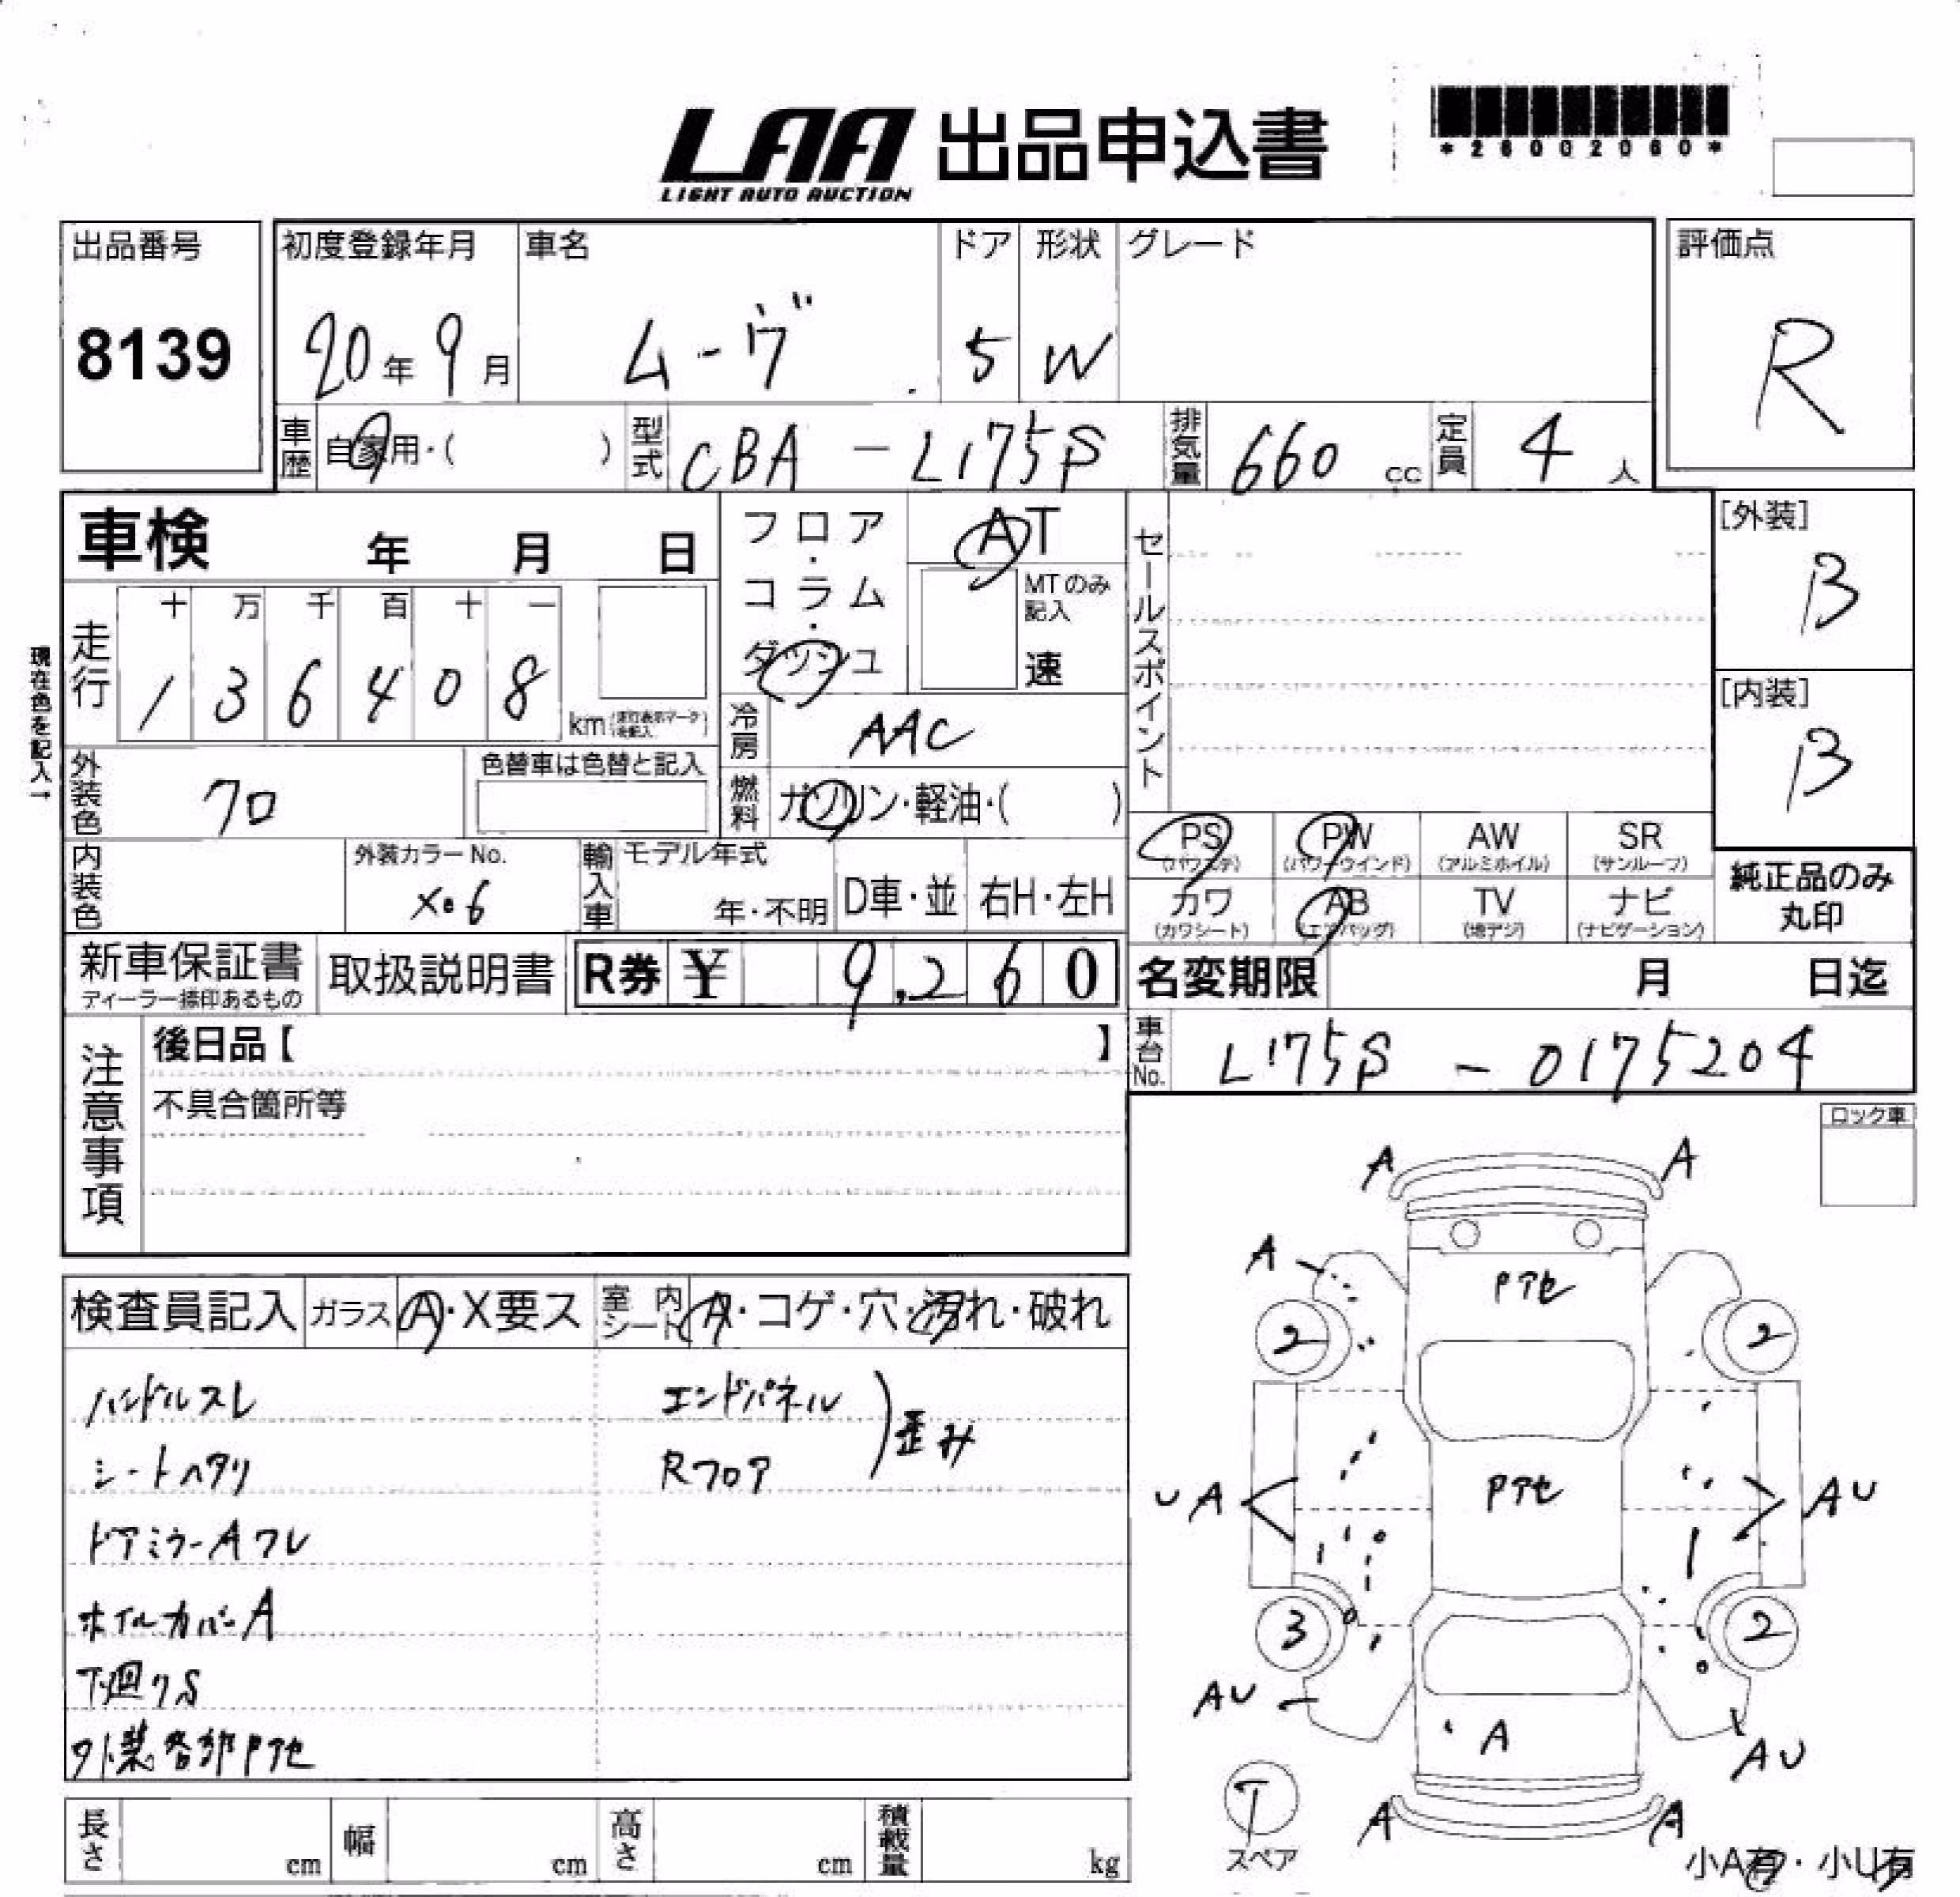 LAA 出品申込書
LIGHT AUTO AUCTION
*26002060*
出品番号
8139
初度登録年月 車名 ドア 形状 グレード
20年 9月 ムーヴ 5 W
評価点
R
車歴 自家用・( ) 型式 CBA - L175S 排気量 660 cc 定員 4 人
車検 年 月 日
フロア・コラム・ダッシュ
AT
MTのみ記入
速
セールスポイント
[外装]
B
[内装]
B
現在色を記入→
走行 十 万 千 百 十 一
1 3 6 4 0 8 km
冷房 AAC
外装色 クロ 色替車は色替と記入
燃料 ガソリン・軽油・( )
内装色 外装カラーNo. X06
輸入車 モデル年式 年・不明 D車・並 右H・左H
PS (パワステ) PW (パワーウインド) AW (アルミホイル) SR (サンルーフ)
カワ (カワシート) AB (エアバッグ) TV (地デジ) ナビ (ナビゲーション)
純正品のみ丸印
新車保証書 ディーラー捺印あるもの 取扱説明書 R券 ¥ 9,260
名変期限 月 日迄
車台No. L175S - 0175204
注意事項
後日品【 】
不具合箇所等
ロック車
検査員記入 ガラス A・X要ス 室内シート A・コゲ・穴・汚れ・破れ
ハンドルスレ エンドパネル
シートヘタリ Rフロア 歪み
ドアミラーAワレ
ホイルカバーA
下廻りS
外装各部Pアセ
A A
A
Pアセ
2 2
Pアセ
UA AU
3 2
AU
A
AU
T
スペア
A A
小A有・小U有
長さ cm 幅 cm 高さ cm 積載量 kg